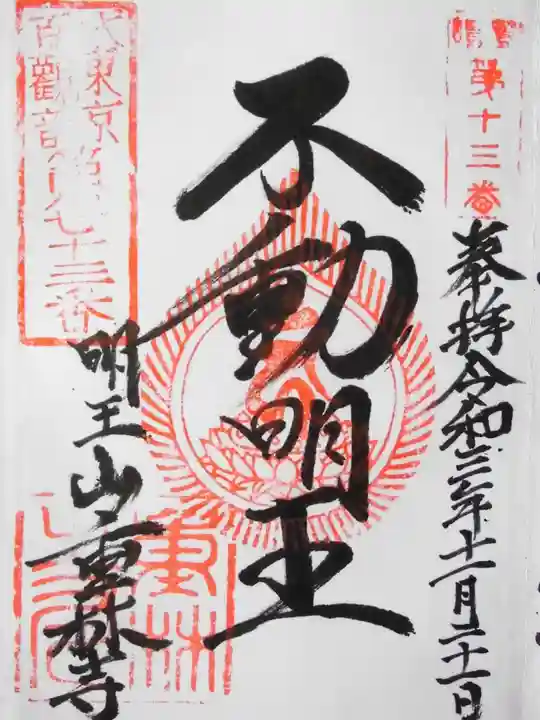 第十三番
奉拝 令和三年十一月二十一日
不動明王
大東京
百觀音第七十三番
明王山 重林寺
重林